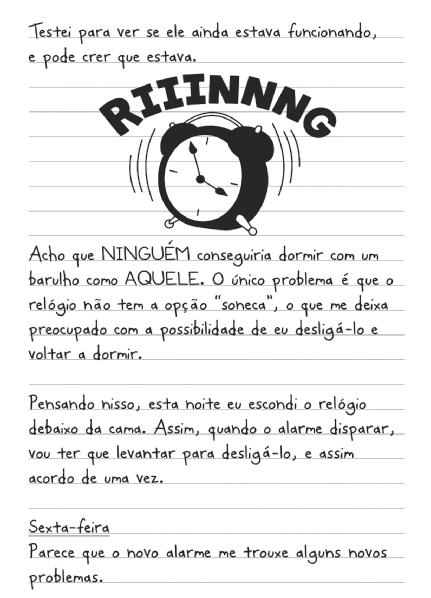 Testei para ver se ele ainda estava funcionando,
e pode crer que estava.
RIIINNNG
Acho que NINGUÉM conseguiria dormir com um
barulho como AQUELE. O único problema é que o
relógio não tem a opção "soneca", o que me deixa
preocupado com a possibilidade de eu desligá-lo e
voltar a dormir.
Pensando nisso, esta noite eu escondi o relógio
debaixo da cama. Assim, quando o alarme disparar,
vou ter que levantar para desligá-lo, e assim
acordo de uma vez.
Sexta-feira
Parece que o novo alarme me trouxe alguns novos
problemas.